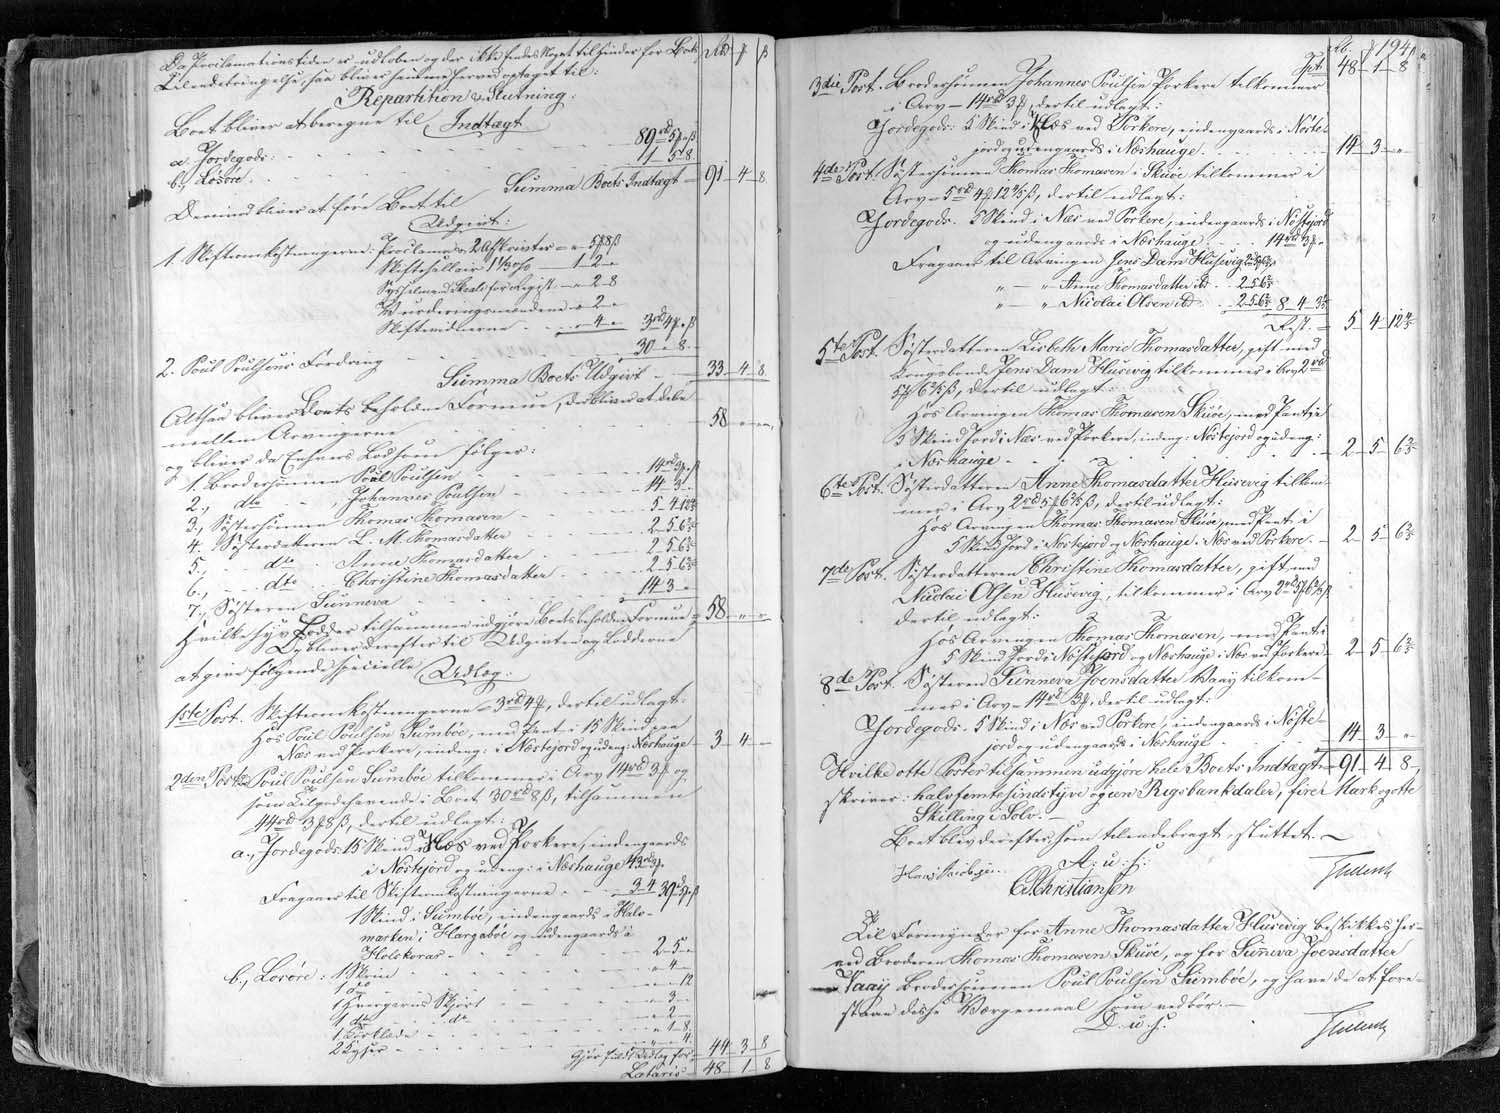 Da Proclamationstiden er udloben og der ikke findes Noget til Hinder for Boets Rbd ꝑ ß
Tilendebringelse, saa bliver samme herved optaget til:
Repartition & Slutning:
Boet bliver at beregne til Indtægt
a. Jordegods: 89rd 5ꝑ " ß
b., Lösöre: 1 5 8.
Summa Boets Indtægt 91 4 8
Derimod bliver at före Boet til
Udgivt:
1. Skifteomkostningerne: Proclama & 2 Afskrivter " 5ꝑ 8ß
Skiftesallair 1⅓ o/o 1 2 "
Sysselmand for Regist. " 2 8
Vurderingsmændene " 2 "
Skiftevidnerne " 4 " 3rd 4ꝑ " ß
2. Poul Poulsens Fordring 30 " 8.
Summa Boets Udgivt 33 4 8
Altsaa bliver Boets beholdne Formue, der bliver at dele
mellem Arvingerne 58 " "
og bliver da Enhvers Lod som fölger:
1. Brodersönnen Poul Poulsen 14rd 3ꝑ " ß
2., do Johannes Poulsen 14 3 "
3., Söstersönnen Thomas Thomasen 5 4 12 4/5
4. Sösterdatteren L. M. Thomasdatter 2 5 6 2/5
5., do Anne Thomasdatter 2 5 6 2/5
6., do Christine Thomasdatter 2 5 6 2/5
7., Sösteren Sünneva 14 3 "
Hvilke syv Lodder tilsammen udgjöre Boets beholdne Formue 58 " "
Og bliver derefter til Udgivten og Lodderne
at give fölgende specielle Udlæg:
1ste Post. Skifteomkostningerne 3rd 4ꝑ, dertil udlagt:
Hos Poul Poulsen Sumböe, med Pant i 15 Skind
Næs ved Porkere, indeng: i Nöstejord og udeng: Næshauge 3 4 "
2den Post. Poul Poulsen Sumböe tilkommer i Arv 14rd 3ꝑ og
som Tilgodehavende i Boet 30rd 8ß, tilsammen
44rd 3ꝑ 8ß, dertil udlagt:
a., Jordegods: 15 Skind i Næs ved Porkere, indengaards
i Nöstejord og udeng: i Næshauge 43rd 3ꝑ
Fragaaer til Skifteomkostningerne 3 4 39rd 5ꝑ " ß
1 Skind i Sumböe, indengaards i Halv-
marken i Hargaböe og udengaards i
Holskoras 2 5 "
b., Lösöre: 1 Skrin " 4 "
1 do " " 12
1 Hvergarns Skjört " 3 "
1 do do " 2 "
1 Törklæde " 1 8.
2 Kyser " " 4.
Gjör fuldt Udlæg for 44 3 8
Lateris 48 1 8
194
Rb. ꝑ ß
Tpt. 48 1 8
3die Post. Brodersönnen Johannes Poulsen Porkere tilkommer
i Arv 14rd 3ꝑ, dertil udlagt:
Jordegods: 5 Skind i Næs ved Porkere, indengaards i Nöste-
jord og udengaards i Næshauge 14 3 "
4de Post. Söstersönnen Thomas Thomasen i Skuöe tilkommer i
Arv 5rd 4ꝑ 12 4/5 ß, dertil udlagt:
Jordegods. 5 Skind i Næs ved Porkere, indengaards i Nöstejord
og udengaards i Næshauge 14rd 3ꝑ "
Fragaaer til Arvingen Jens Dam Husevig 2rd 5ꝑ 6 2/5
" " Anne Thomasdatter ibd. 2 5 6 2/5
" " Nicolai Olsen ibd. 2 5 6 2/5 8 4 3 1/5
Rest. 5 4 12 4/5
5te Post. Sösterdatteren Lisbeth Marie Thomasdatter, gift med
Kongsbonde Jens Dam Husevig tilkommer i Arv 2rd
5ꝑ 6 2/5 ß, dertil udlagt:
Hos Arvingen Thomas Thomasen Skuöe, med Pant i
5 Skind Jord i Næs ved Porkere, indeng: Nöstejord og udeng:
i Næshauge 2 5 6 2/5
6te Post. Sösterdatteren Anne Thomasdatter Husevig tilkom-
mer i Arv 2rd 5ꝑ 6 2/5 ß, dertil udlagt:
Hos Arvingen Thomas Thomasen Skuöe, med Pant i
5 Skind Jord i Nöstejord og Næshauge i Næs ved Porkere. 2 5 6 2/5
7de Post. Sösterdatteren Christine Thomasdatter, gift med
Nicolai Olsen Husevig, tilkommer i Arv 2rd 5ꝑ 6 2/5 ß
dertil udlagt:
Hos Arvingen Thomas Thomasen, med Pant i
5 Skind Jord i Nöstejord og Næshauge i Næs ved Porkere 2 5 6 2/5
8de Post. Sösteren Sünneva Joensdatter Vaay tilkom-
mer i Arv 14rd 3ꝑ, dertil udlagt:
Jordegods. 5 Skind i Næs ved Porkere, indengaards i Nöste-
jord og udengaards i Næshauge 14 3 "
Hvilke otte Poster tilsammen udgjöre hele Boets Indtægt 91 4 8,
skriver: halvfemtesindstyve og een Rigsbankdaler, fire Mark og otte
Skilling i Sölv.
Boet blev derefter, som tilendebragt, sluttet.
A: u: s:
Hans Jacobsen.
C. Christiansen
Til Formynder for Anne Thomasdatter Husevig beskikkes her-
ved Broderen Thomas Thomasen Skuöe, og for Sünneva Joensdatter
Vaay Brodersönnen Poul Poulsen Sumböe, og have de at fore-
staae disse Værgemaal som vedbör.
D. u. s.